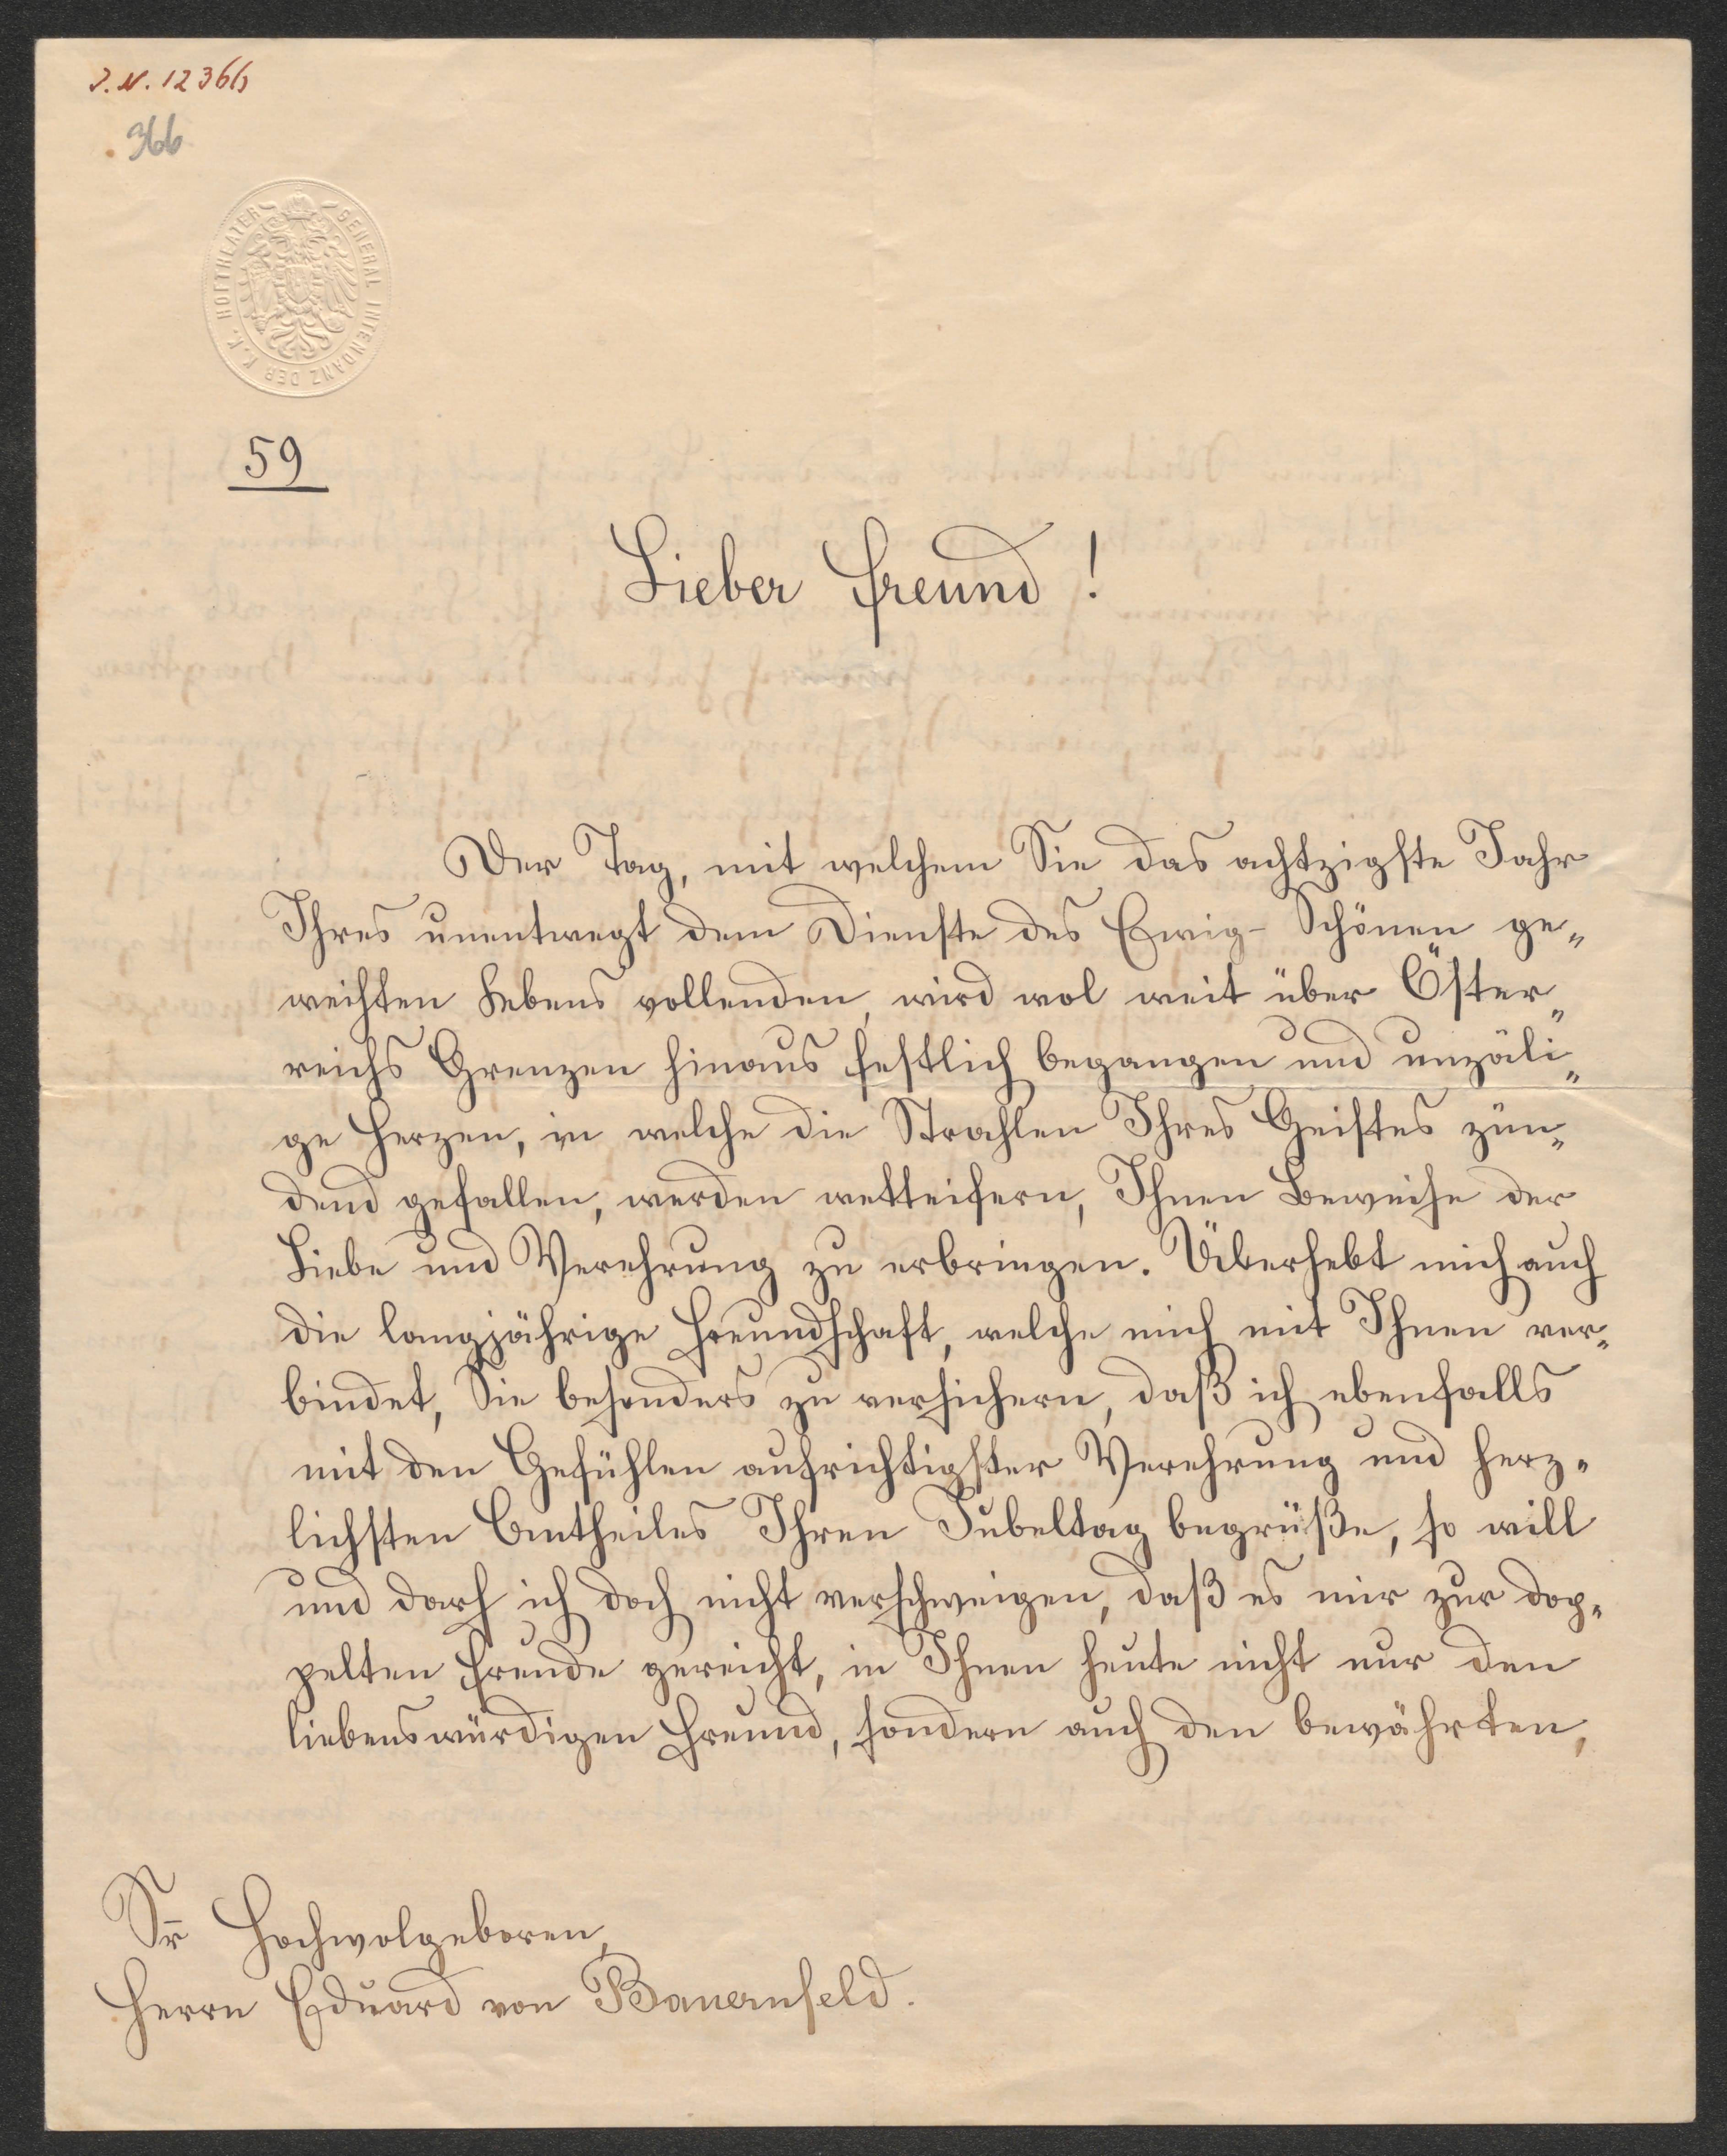 J.N. 12366
366
GENERAL INTENDANZ DER K.K. HOFTHEATER
59
Lieber Freund!
Der Tag, mit welchem Sie das achtzigste Jahr
Ihres unentwegt dem Dienste des Ewig-Schönen ge„
weihten Lebens vollenden, wird wol weit über Öster„
reichs Grenzen hinaus festlich begangen und unzäli„
ge Herzen, in welche die Strahlen Ihres Geistes zün„
dend gefallen, werden wetteifern, Ihnen Beweise der
Liebe und Verehrung zu erbringen. Überhebt mich auch
die langjährige Freundschaft, welche mich mit Ihnen ver„
bindet, Sie besonders zu versichern, daß ich ebenfalls
mit den Gefühlen aufrichtigster Verehrung und herz„
lichsten Antheiles Ihren Jubeltag begrüße, so will
und darf ich doch nicht verschweigen, daß es mir zur dop„
pelten Freude gereicht, in Ihnen heute nicht nur den
liebenswürdigen Freund, sondern auch den bewährten,
Sr Hochwolgeboren,
Herrn Eduard von Bauernfeld.